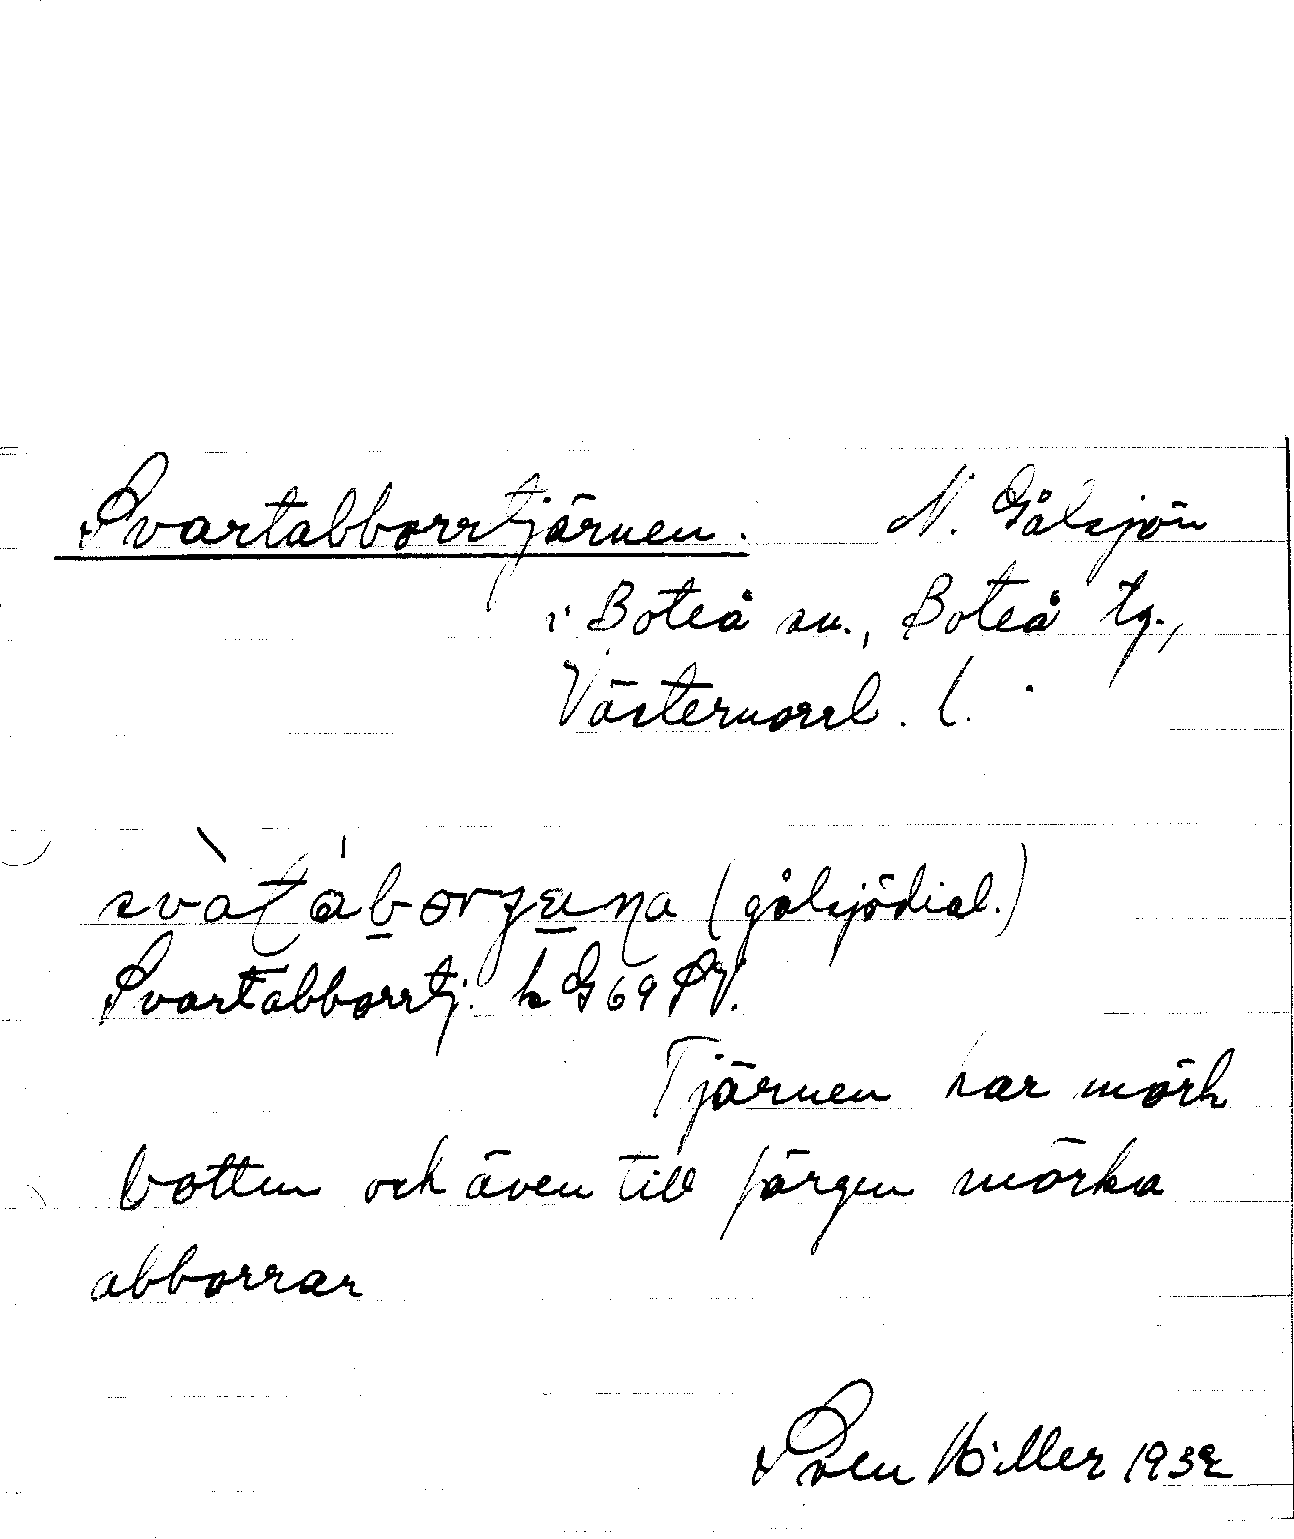 Svartabborrtjärnen. N. Gålsjön
i Boteå sn., Boteå tg.,
Västernorrl. l.
(gålsjödial.)
Svartabborrtj. k G69 SV.
Tjärnen har mörk
botten och även till färgen mörka
abborrar
Sven Hiller 1932